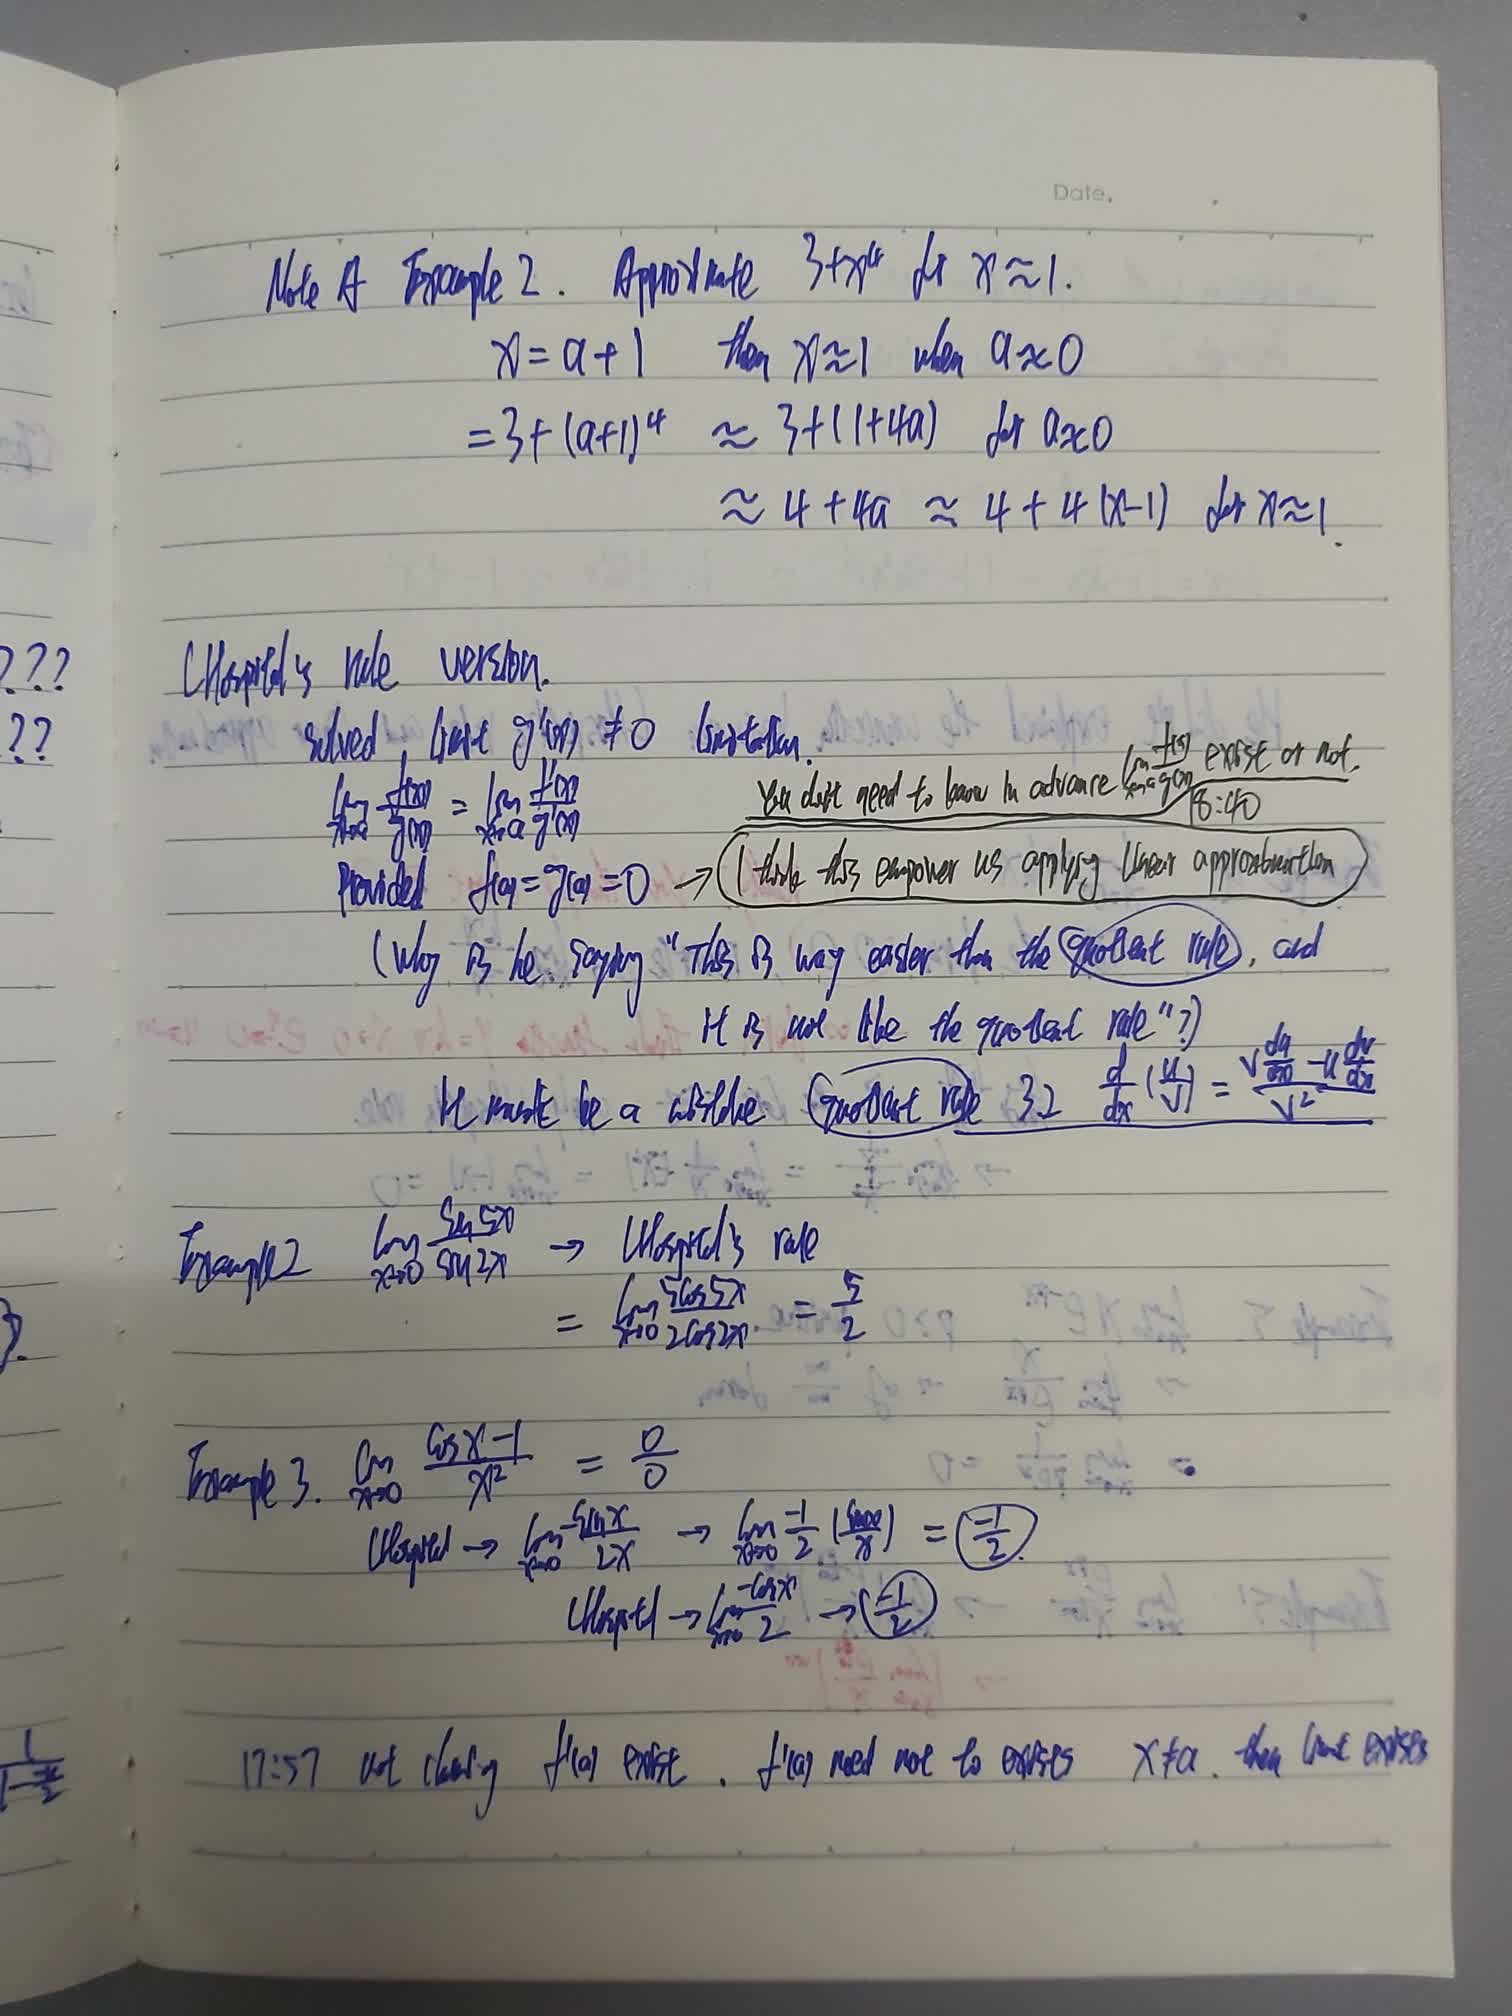 Date.
Note A Example 2. Approximate 3+x⁴ for x≈1.
x = a+1 then x≈1 when a≈0
= 3+(a+1)⁴ ≈ 3+(1+4a) for a≈0
≈ 4+4a ≈ 4+4(x-1) for x≈1.
L'Hospital's rule version.
solved, limit g'(x) ≠ 0 limitation.
lim x→a f(x)/g(x) = lim x→a f'(x)/g'(x)
You don't need to know in advance lim x→a f'(x)/g'(x) exist or not.
18:40
Provided f(a) = g(a) = 0 → I think this empower us applying linear approximation
(Why is he saying "This is way easier than the quotient rule, and
it is not like the quotient rule"?)
It must be a mistake Quotient rule 3.2 d/dx (u/v) = (v du/dx - u dv/dx)/v²
Example 2 lim x→0 sin5x/sin2x → L'Hospital's rule
= lim x→0 5cos5x/2cos2x = 5/2
Example 3. lim x→0 (cosx-1)/x² = 0/0
L'Hospital → lim x→0 -sinx/2x → lim x→0 -1/2 (sinx/x) = -1/2.
L'Hospital → lim x→0 -cosx/2 → -1/2
17:57 not f'(a) exist. f'(a) need not to exists x≠a. then limit exists
???
??